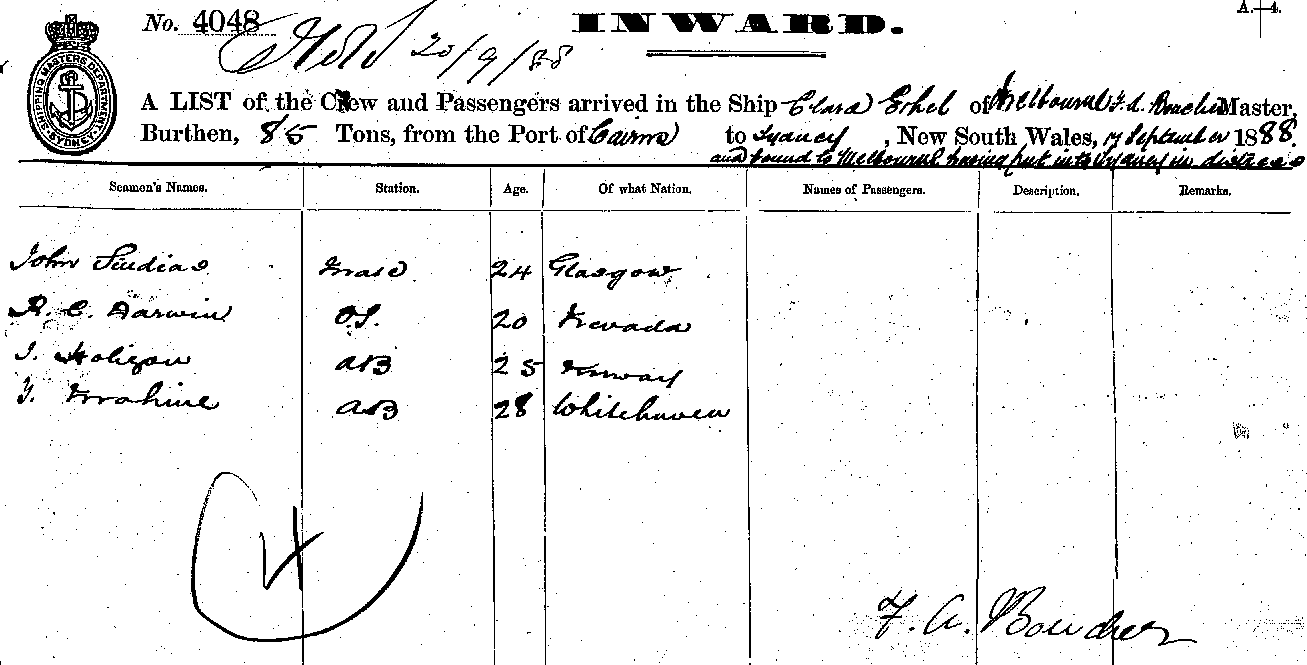 A.—4.
No. 4048 INWARD.
20/9/88
SHIPPING MASTERS DEPARTMENT SYDNEY
A LIST of the Crew and Passengers arrived in the Ship Clara Ethel of Melbourne F. A. Master,
Burthen, 85 Tons, from the Port of Cairns to Sydney, New South Wales, 17 September 1888.
and bound to Melbourne having put into Sydney in distress
Seamen's Names. Station. Age. Of what Nation. Names of Passengers. Description. Remarks.
John Mate 24 Glasgow
R. C. Darwin O.S. 20 Nevada
AB 25 Norway
AB 28 Whitehaven
4
F. A.